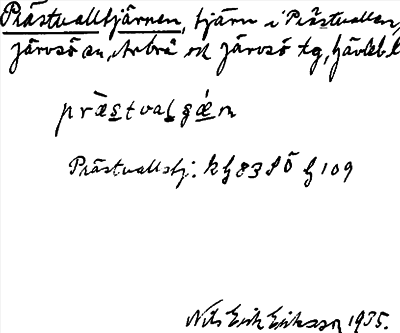 Prästvalltjärnen, tjärn i Prästvallen,
Järvsö sn, Arbrå och Järvsö tg, Gävleb. l
præstvalʂǽn
Prästvallstj. k h 83 SÖ h 109
Nils Erik Eriksson 1935.